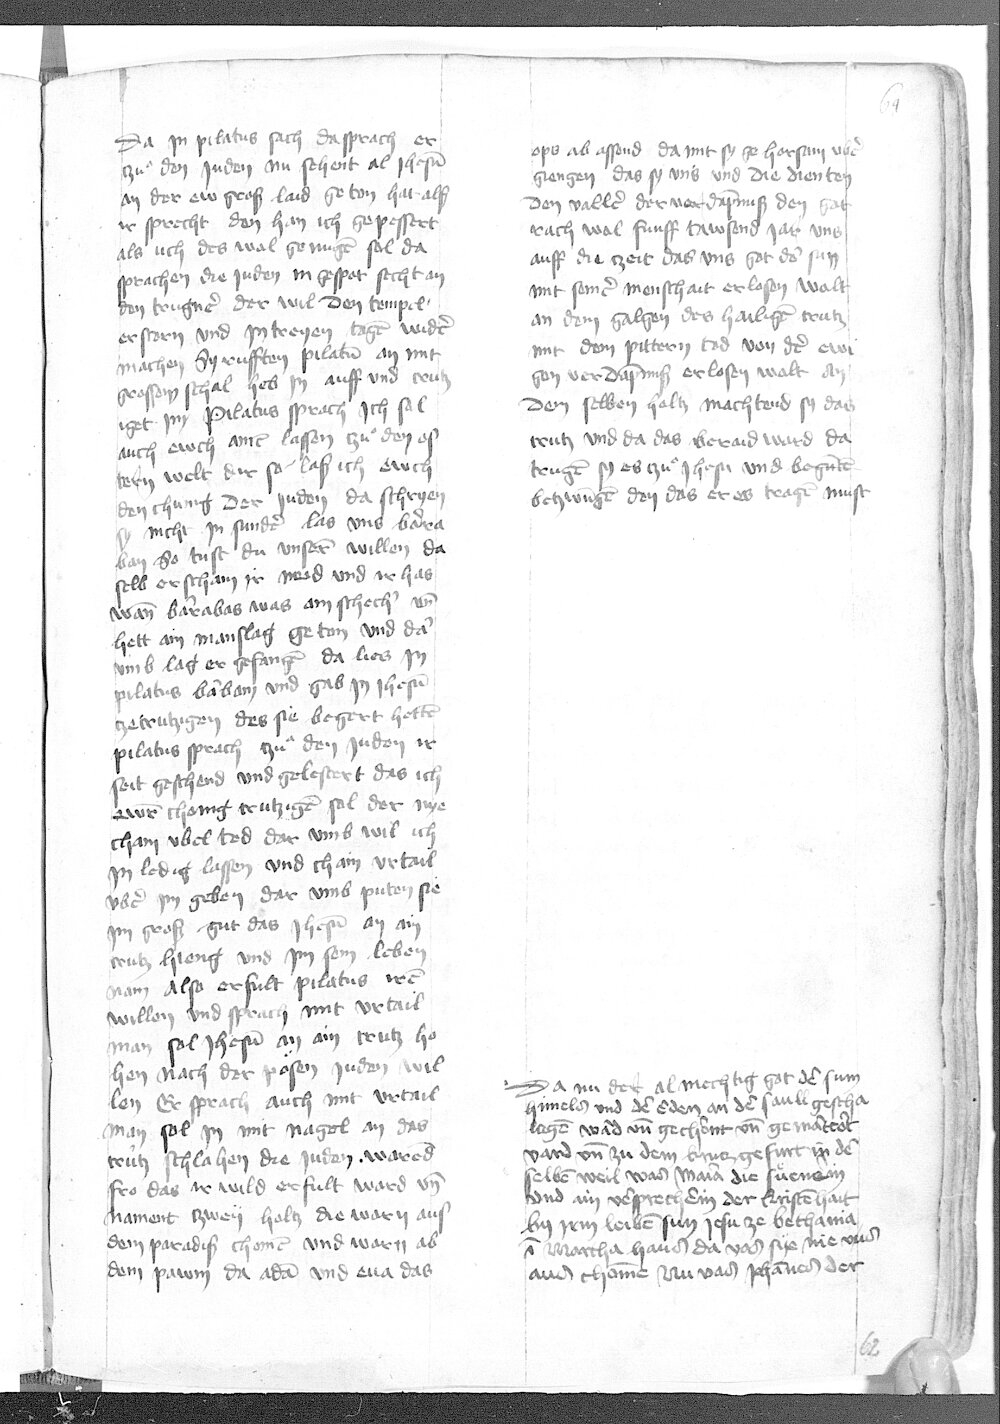 64
Da in pilatus sach da sprach er
czu den Juden nu sehent al Jhesū
an der ew groß laid geton hat alß
ir sprecht den han ich gepessert
als uch des wal genugē sol da
sprachen die Juden in gespot secht an
den trugnē der wil Den tempil
erstorn und Jn treyen tagē widē
machen Sy rufften pilatū an mit
grossem schal heb in auff und crutz
iget in Pilatus sprach Ich sol
auch ewch ainē lassen czu den os
tern welt dar so laß ich ewch
den chunig Der Juden da schryen
sy nicht Jn sundē las uns barra
ban So tust du unserē willen da
selb erscham ir neid und ir has
wan̄ barabas was ain schechē un̄
hett ain manslag geton und dar
umb lag er gefangē da lies in
pilatus baraban und gab in Jhesū
ze crutzigen des sie begert hettē
pilatus sprach czu den Juden ir
seit geschend und gelestert das ich
ewrē chonig crutzigē sol der nye
cham ubel ted dar umb wil ich
in ledig lassen und cham urtail
ubē in geben dar umb puten sie
im groß gut das Jhesū an ain
crutz hieng und im sein leben
nam Also erfult pilatus irē
willen und sprach mit urtail
man sol Jhesū an ain crutz ho
hen nach der pösen Juden wil
len Er sprach auch mit urtail
man sol in mit nagel an das
crutz schlahen die Juden warend
fro das ir wild erfult ward un̄
nament tzwey holtz die warn aus
dem paradiß chomē und warn ab
dem pawm da adā und eua das
ops ab assend da mit sy ze horsam ubē
giengen das sy uns und Die dienten
Den vallē der verdapmnuß den got
rach wal funff tawsend jar uns
auff die czeit das uns got dē sun
mit seinē menschait erlosen wolt
an dem galgen des hailigē crutz
mit dem pittern tod von dē ewi
gen verDapmnuß erlosen wolt an
Dem selben holtz machtend sy das
crutz und da das beraid ward da
trugē sy es czu Jhesu und begūtē
betzwūgē den das er es tragē must
Da nu der almechtig got dē sum
himels und dē Erden an dē saull gescha
lagē ward un̄ gechrönt un̄ gemartert
vard un̄ zu dem kreucz gefurt in dē
selbē weil was Maria die suenerin
und ain vēsprecherin der kristēhait
by irm leibē sun jesu ze bethania
ī Martha haus da vas sye nie vus
aus chomē Nu vas Johānes der
62